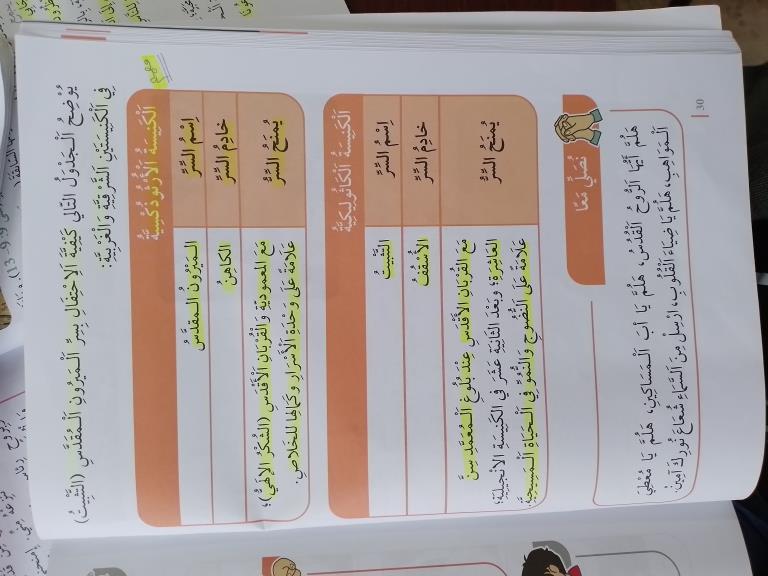 يُوْضِحُ الْـجَدْوَلُ التَّالِي كَيْفِيَّةَ الاحْتِفَالِ بِسِرِّ الْـمَيْرُونِ الْـمُقَدَّسِ (التَّثْبِيْتُ)
فِي الْكَنِيسَتَيْنِ الشَّرْقِيَّةِ وَالْغَرْبِيَّةِ:
مهم
الْكَنِيسَةُ الْأُرْثُوذُكْسِيَّةُ
اِسْمُ السِّرِّ الْـمَيْرُونُ الْـمُقَدَّسُ
خَادِمُ السِّرِّ الْكَاهِنُ
يُمْنَحُ السِّرُّ مَعَ الْمَعْمُودِيَّةِ وَالْقُرْبَانِ الْأَقْدَسِ (الشُّكْرُ الْإِلَهِيُّ)؛
عَلَامَةً عَلَى وَحْدَةِ الْأَسْرَارِ وَكَمَالِهَا لِلْخَلَاصِ.
الْكَنِيسَةُ الْكَاثُولِيكِيَّةُ
اِسْمُ السِّرِّ التَّثْبِيتُ
خَادِمُ السِّرِّ الْأُسْقُفُ
يُمْنَحُ السِّرُّ مَعَ الْقُرْبَانِ الْأَقْدَسِ عِنْدَ بُلُوغِ الْـمُعَمَّدِ سِنَّ
الْعَاشِرَةِ؛ وَبَعْدَ الثَّانِيَةَ عَشَرَ فِي الْكَنِيسَةِ الْإِنْجِيلِيَّةِ؛
عَلَامَةً عَلَى النُّضُوجِ وَالنُّمُوِّ فِي الْـحَيَاةِ الْـمَسِيحِيَّةِ.
نُصَلِّي مَعًا
هَلُمَّ أَيُّهَا الرُّوحُ الْقُدُسُ، هَلُمَّ يَا أَبَ الْـمَسَاكِينِ، هَلُمَّ يَا مُعْطِيَ
الْـمَوَاهِبِ، هَلُمَّ يَا ضِيَاءَ الْقُلُوبِ، ارْسِلْ مِنَ السَّمَاءِ شُعَاعَ نُورِكَ آمِينْ.
30